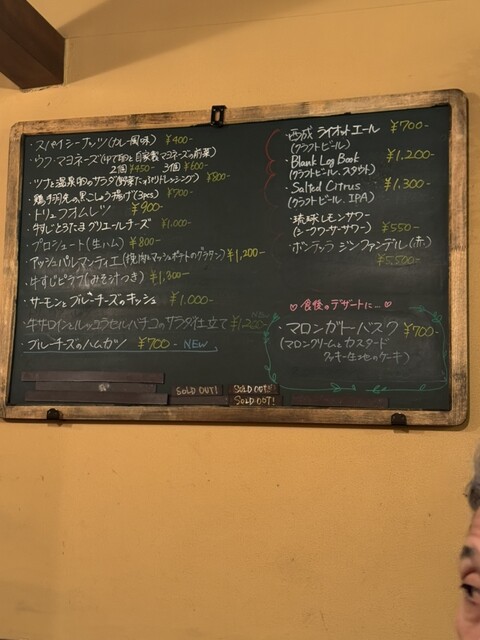 ・スパイシーナッツ(カレー風味) ¥400-
・ウフ・マヨネーズ(ゆで卵と自家製マヨネーズの前菜)
2個¥450- 3個¥600-
・ツナと温泉卵のサラダ(野菜たっぷりドレッシング) ¥800-
・鶏手羽先の黒こしょう揚げ(3pcs) ¥700-
・トリュフオムレツ ¥900-
・牛すじとうたまグリエールチーズ ¥1,000-
・プロシュート(生ハム) ¥800-
・アッシェパルマンティエ(挽肉とマッシュポテトのグラタン) ¥1,200-
・牛すじピラフ(みそ汁つき) ¥1,300-
・サーモンとブルーチーズのキッシュ ¥1,000-
・牛サーロインとルッコラセルバチコのサラダ仕立て ¥1,200-
・ブルーチーズのハムカツ ¥700- NEW
SOLD OUT! SOLD OUT!
SOLD OUT!
・西成 ライオットエール ¥700-
(クラフトビール)
・Blank Log Book ¥1,200-
(クラフトビール、スタウト)
・Salted Citrus ¥1,300-
(クラフトビール、IPA)
・琉球レモンサワー
(シークワーサーサワー) ¥550-
・ボンテッラ ジンファンデル(赤)
¥5,500-
♡食後のデザートに…♡
・マロンガトーバスク ¥700-
(マロンクリームとカスタード
クッキー生地のケーキ)